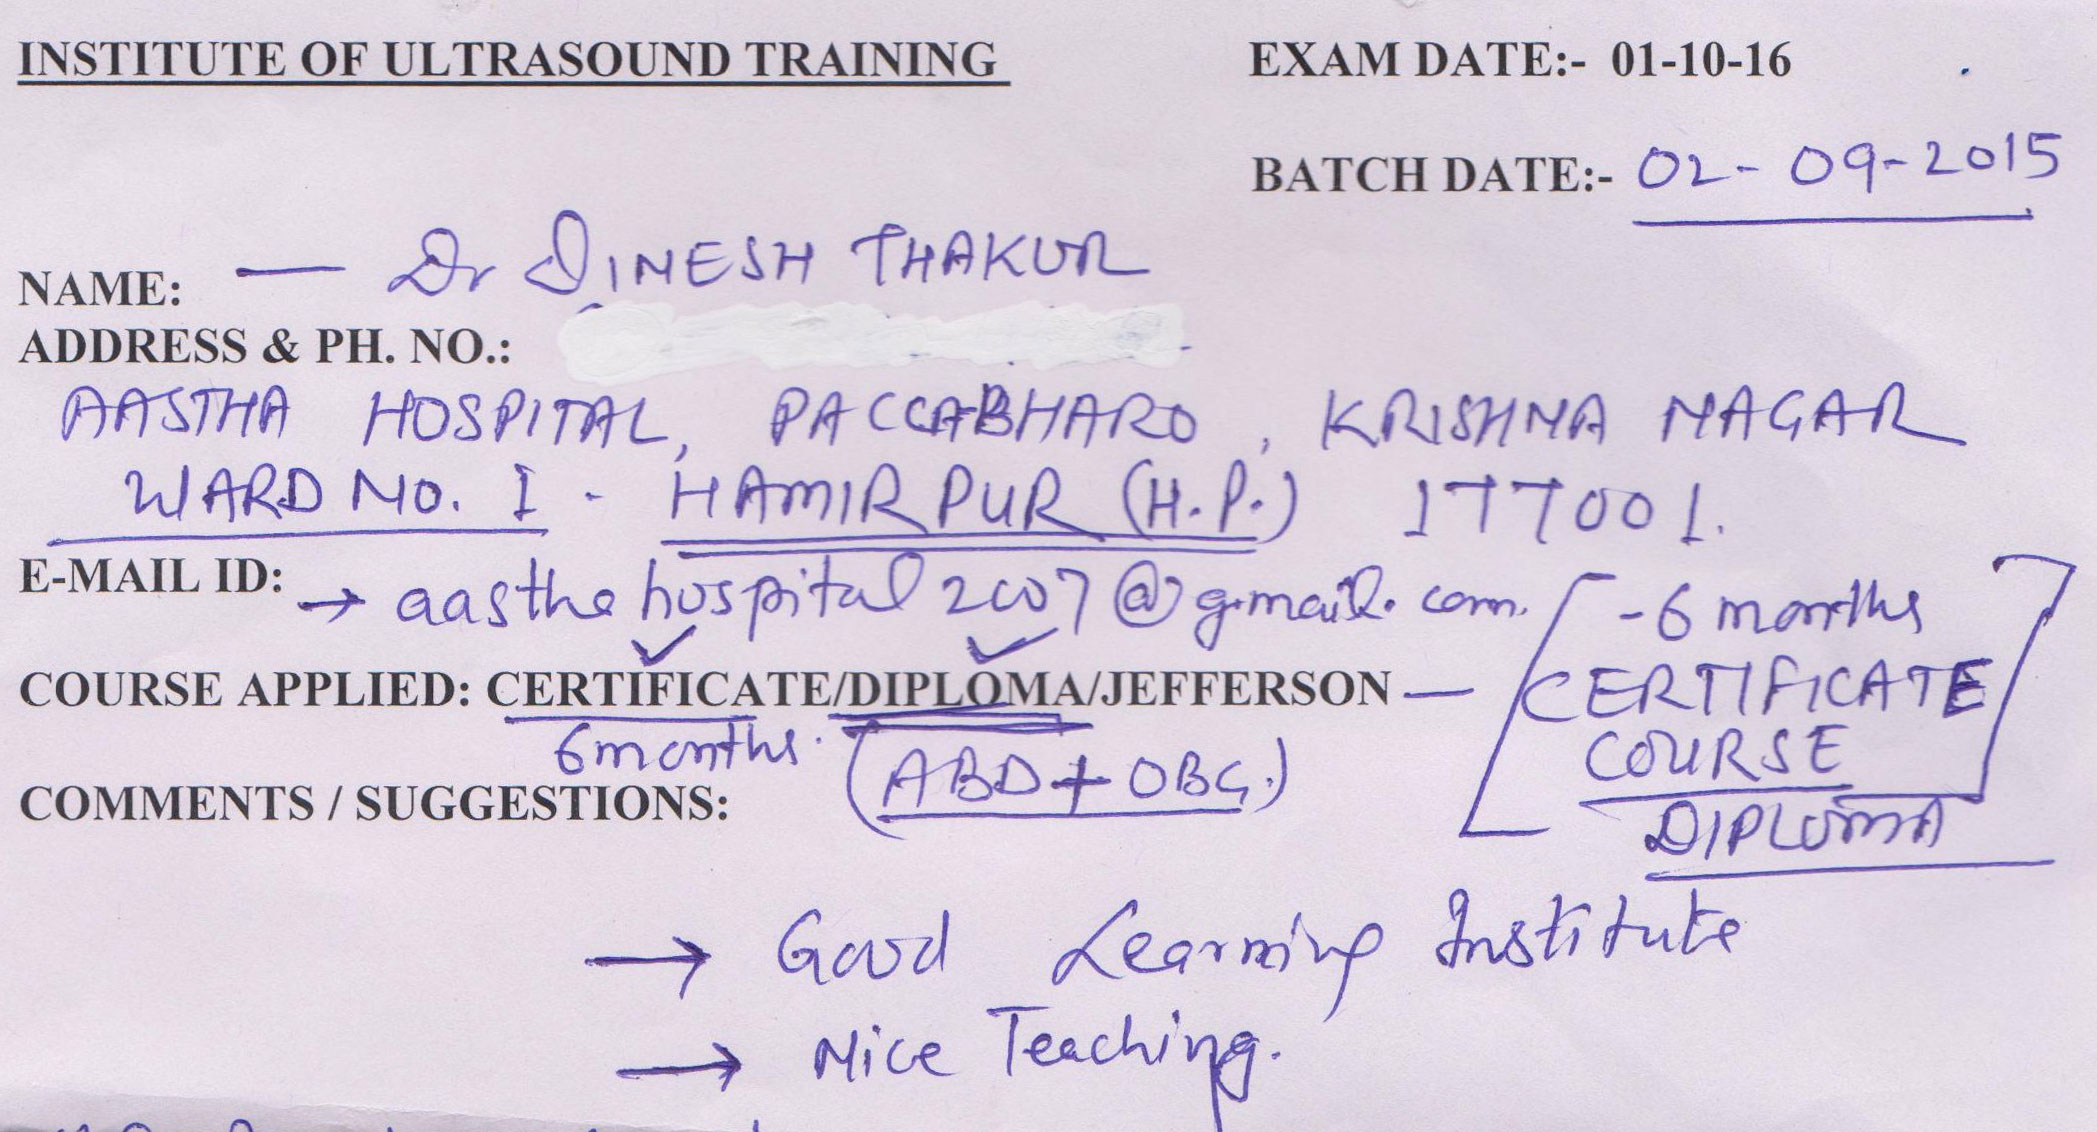 INSTITUTE OF ULTRASOUND TRAINING
EXAM DATE:- 01-10-16
BATCH DATE:- 02-09-2015
NAME: — Dr DINESH THAKUR
ADDRESS & PH. NO.:
AASTHA HOSPITAL, PACCABHARO, KRISHNA NAGAR
WARD NO. I - HAMIRPUR (H.P.) 177001.
E-MAIL ID: → aasthahospital2007@gmail.com.
COURSE APPLIED: CERTIFICATE/DIPLOMA/JEFFERSON —
[-6 months
CERTIFICATE
COURSE]
DIPLOMA
6 months. (ABD + OBG.)
COMMENTS / SUGGESTIONS:
→ Good Learning Institute
→ Nice Teaching.